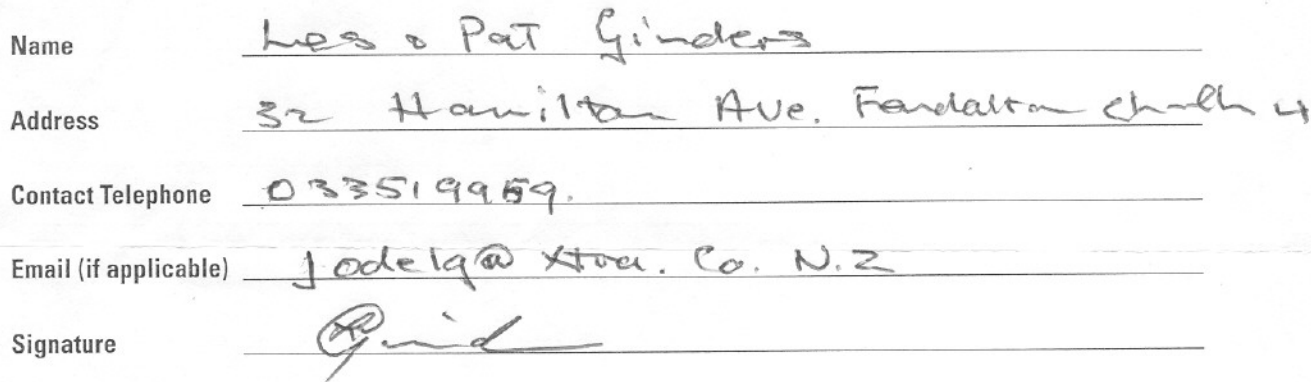 Name Les & Pat Ginders
Address 32 Hamilton Ave. Fendalton Chch 4
Contact Telephone 033519959.
Email (if applicable) jodelg@xtra.Co.N.Z
Signature